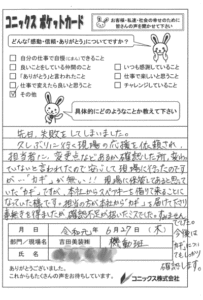 コニックス ポケットカード
お客様・私達・社会の幸せのために
皆さんの声を聞かせて下さい
どんな「感動・信頼・ありがとう」についてですか？
自分の仕事で自慢(じまん)できること
良いことをしている仲間のこと
「ありがとう」と言われたこと
仕事で変えたら良いと思うこと
その他
いつも感謝していること
仕事で楽しいと思うこと
チャレンジしていること
具体的にどのようなことか教えて下さい
先日、失敗をしてしまいました。
に行く現場の応援を依頼され、
担当者に、変更点など 確認した所、変わ
っていないと言われたので安心して現場に行ったのです
が…"カギ"が無い!! 現場に保管してあると思って
いた"カギ"ですが、本社からスペアキーを借りて来ることに
なっていた様です。担当の方が本社から"カギ"を届けて下さり
事務を得ましたが、確認不足が招いたことでした。すみません
でした。
今後は
"カギ"につい
てもしっかり
確認します。
月日 令和元年 6月27日(木)
部門／現場名 吉田美装㈱ 機動班
氏名
ありがとうございました。
これからもたくさんの声をお待ちしています。
コニックス株式会社